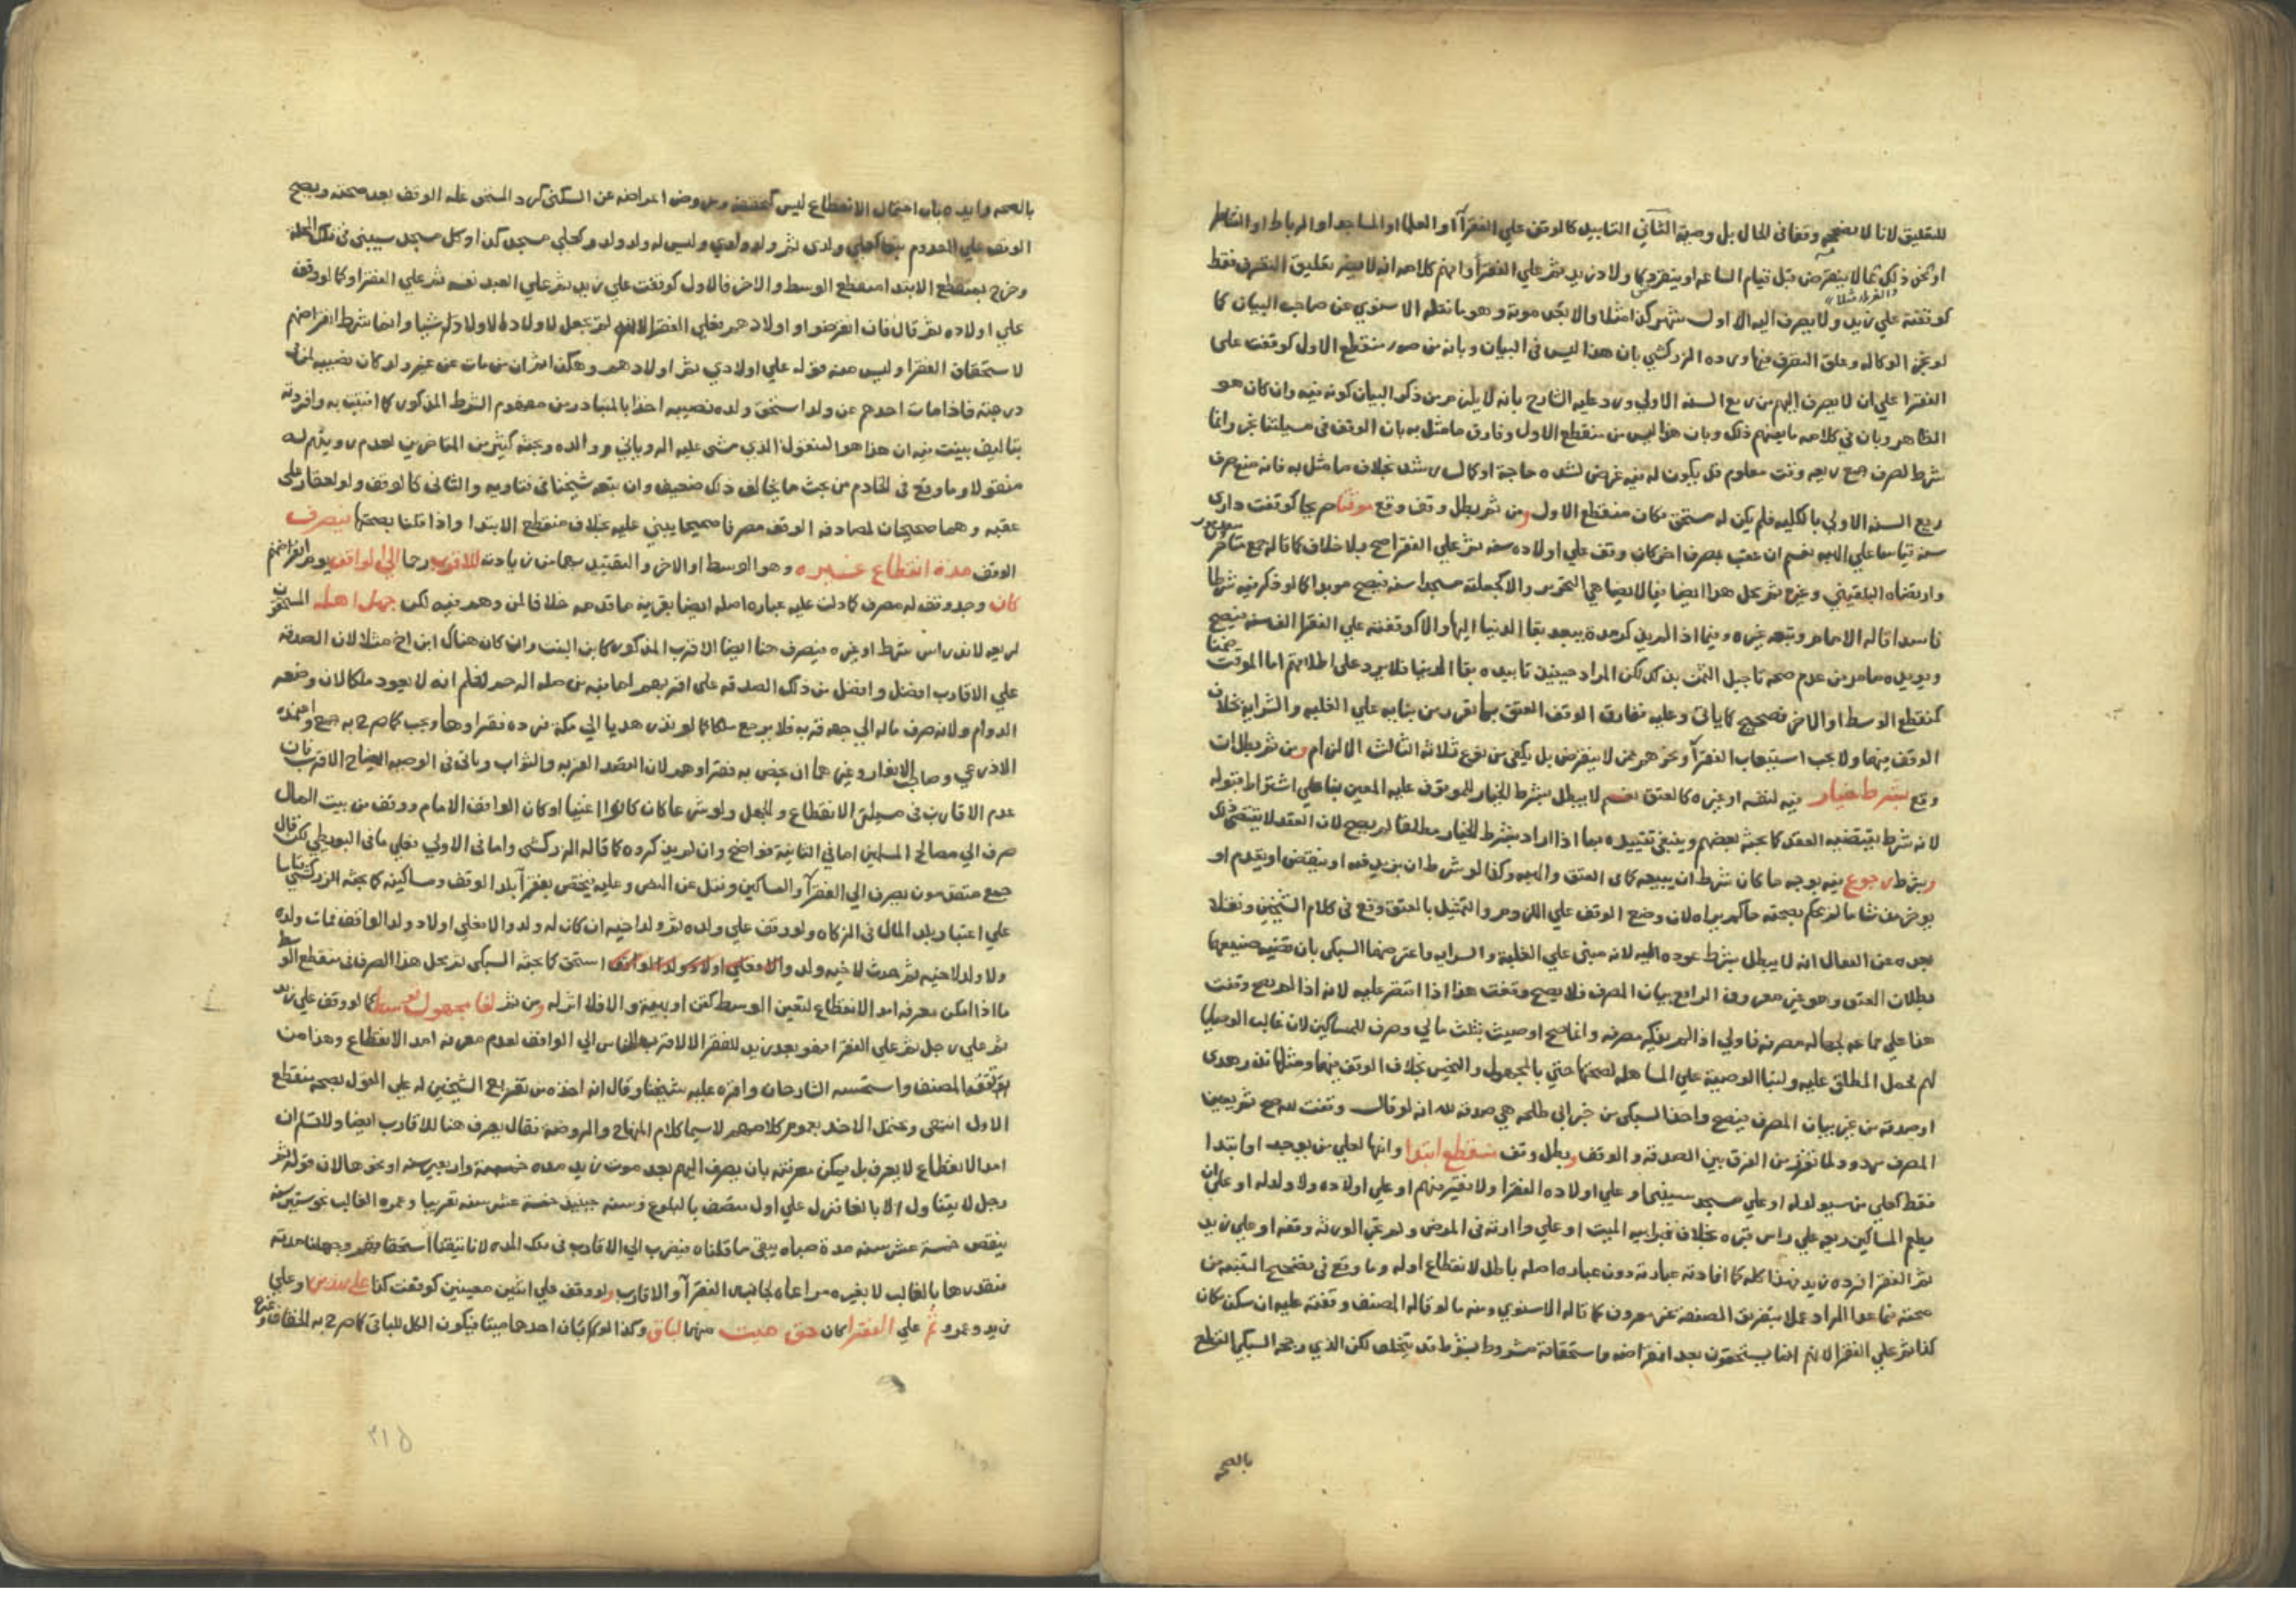 للتعليق لانا لا نصححه وقفا في الحال بل وصية الثاني التابيد كالوقف علي الفقرا او العلما او المساجد او الرباط او القناطر
او نحو ذلك مما لا ينقرض قبل قيام الساعه او ينقرض كاولاد زيد ثم علي الفقرا وافهم كلامه انه لا يضر تعليق التصرف فقط
كوقفته علي زيد ولا يصرف اليه الا اول شهر كذا مثلا والا نحو موته وهو ما نقله الاسنوي عن صاحب البيان كما
لو نجز الوكاله وعلق التصرف فيها ورده الزركشي بان هذا ليس في البيان وبانه من صور منقطع الاول كوقفت على
الفقرا علي ان لا يصرف اليهم من ريع السنه الاولي ورد عليه الشارح بانه لا يلزم من ذكر البيان كونه فيه وان كان هو
الظاهر وبان في كلامه ما يفهم ذلك وبان هذا ليس من منقطع الاول وفارق ما مثل به بان الوقف في مسيلتنا نجز وانما
شرط لصرف جميع ريعه وقت معلوم قد يكون له فيه غرض لشده حاجة او كمال رشد بخلاف ما مثل به فانه منع صرف
ريع السنه الاولي بالكليه فلم يكن له مستحق فكان منقطع الاول ومن ثم بطل وقف وقع موقتا صريحا كوقفت داري
سنه قياسا علي الهبه نعم ان عقب بمصرف اخر كان وقف علي اولاده سنه ثم علي الفقرا صح بلا خلاف كما قاله جمع متاخر
وارتضاه البلقيني وغيره ثم محل هذا ايضا فيما لا يضاهي التحرير والا كجعلته مسجدا سنه فيصح موبدا كما لو ذكر فيه شرطا
فاسدا قاله الامام وتبعه غيره وفيما اذا لم يذكر مدة يبعد بقا الدنيا اليها والا كوقفته علي الفقرا الف سنه فيصح
ويويده ما مر من عدم صحه تاجيل الثمن بذلك لكن المراد حينئذ تابيده بقا الدنيا فلا يرد على اطلاقهم اما الموقت ضمنا
كمنقطع الوسط او الاخر فصحيح كما ياتي وعليه نفارق الوقف العتق بما تقرر من بنايه علي الغلبه والسرايه بخلاف
الوقف فيهما ولا يجب استيعاب الفقرا ونحوهم ممن لا ينقرض بل يكفي من نوع ثلاثة الثالث الالزام ومن ثم بطل ان
وقع بشرط خيار فيه لنفسه او غيره كالعتق نعم لا يبطل بشرط الخيار للموقوف عليه المعين بنا علي اشتراط قبوله
لانه شرط يقتضيه العقد كما بحثه بعضهم وينبغي تقييده بما اذا اراد بشرط الخيار مطلقا لم يصح لان العقد لا يقتضي ذلك
وبشرط رجوع فيه بوجه ما كان شرط ان يبيعه كما في العتق والهبه وكذا لو شرط ان يزيد فيه او ينقص او يقدم او
يوخر من شا ما لم يحكم بصحته حاكم يراه لان وضع الوقف علي اللزوم والتمثيل بالعتق وقع في كلام الشيخين ونقلا
بعده عن القفال انه لا يبطل بشرط عوده اليه لانه مبني علي الغلبة والسرايه واعترضهما السبكي بان قضيه صنيعهما
بطلان العتق وهو غير معروف الرابع بيان المصرف فلا يصح وقفت هذا اذا اقتصر عليه لانه اذا لم يصح وقفت
هذا علي جماعه لجهاله مصرفه فاولي اذا لم يذكر مصرفه وانما صح اوصيت بثلث مالي وصرف للمساكين لان غالب الوصايا
لهم فحمل المطلق عليه ولبنا الوصية علي المساهله لصحتها حتي بالمجهول والنجس بخلاف الوقف فيهما ومثلها نذر هدي
او صدقه من غير بيان المصرف فيصح واخذ السبكي من خبر ابي طلحه هي صدقه لله انه لو قال وقفت لله صح ثم يعين
المصرف مردود لما تقرر من الفرق بين الصدقه والوقف وبطل وقف منقطع ابتدا وانتها لعلي من يوجد او ابتدا
فقط كعلي من سيولد له او علي مسجد سيبنى او علي اولاده الفقرا ولا فقير فيهم او علي اولاده ولا ولد له او علي ان
يطعم المساكين ريعه علي راس قبره بخلاف قبر ابيه الميت او علي وارثه في المرض ولم يجز الورثه وقفه او علي زيد
ثم الفقرا فرده زيد فهذا كله كما افادته عبارته دون عباره اصله باطل لانقطاع اوله وما وقع في تصحيح التنبيه من
صحته فيما عدا المراد عملا بتفريق الصفقة غير معروف كما قاله الاسنوي ومنه ما لو قاله المصنف وقفته عليه ان سكن مكان
كذا ثم علي الفقرا لانهم انما يستحقون بعد انقراضه واستحقاقه مشروط بشرط قد يتخلف لكن الذي رجحه السبكي القطع
بالصحه
بالصحه وايده بان احتمال الانقطاع ليس كتحققه وبفرض اعراضه عن السكني كرد المستحق غله الوقف بعد صحته ويصح
الوقف علي المعدوم تبعا كعلي ولدي ثم ولد ولدي وليس له ولد ولد وكعلي مسجد كذا وكل مسجد سيبنى في تلك المحله
وخرج بمنقطع الابتدا منقطع الوسط والاخر فالاول كوقفت علي زيد ثم علي العبد نفسه ثم علي الفقرا وكما لو وقف
علي اولاده ثم قال فان انقرضوا واولادهم فعلي الفقرا لانه لم يجعل لاولاد الاولاد شيا وانما شرط انقراضهم
لاستحقاق الفقرا وليس منه قوله علي اولادي ثم اولادهم وهكذا ثم ان من مات عن غير ولد كان نصيبه لمن في
درجته فاذا مات احدهم عن ولد استحق ولده نصيبه اخذا بالمتبادر من مفهوم الشرط المذكور كما افتيت به وافردته
بتاليف بينت فيه ان هذا هو المنقول الذي مشى عليه الروياني ووالده وبحثه كثير من المتاخرين لعدم رويتهم له
منقولا وما وقع في الخادم من بحث ما يخالف ذلك ضعيف وان تبعه شيخنا في فتاويه والثاني كالوقف ولو لعقار علي
عقبه وهما صحيحان لمصادفه الوقف مصرفا صحيحا يبني عليه بخلاف منقطع الابتدا واذا قلنا بصحتها فيصرف
الوقف مدة انقطاع غيره وهو الوسط او الاخر والتقييد بهما من زيادته للاقرب رحما الي الواقف يوم انقراضهم
كان وجد وقف له مصرف كما دلت عليه عباره اصله ايضا بقرينه ما قدمه خلافا لمن وهم فيه لكن جهل اهله المستحقون
لريعه لاندراس شرط او غيره فيصرف هنا ايضا لاقرب المذكور كابن البنت وان كان هناك ابن اخ مثلا لان الصدقه
علي الاقارب افضل وافضل من ذلك الصدقه علي اقربهم لما فيه من صله الرحم لعلم انه لا يعود ملكا لان وضعه
الدوام ولانه صرف ماله الي جهه قربه فلا يرجع ملكا كما لو نذر هديا الي مكة فرده فقراوها ويجب كما صرح به جمع واعتمده
الاذرعي وصاحب الانوار وغيرهما ان يختص به فقراوهم لان القصد القربه والثواب وياتي في الوصيه ايضاح الاقرب فان
عدم الاقارب في مسيلتي الانقطاع والجهل ولو شرعا كان كانوا اغنيا او كان الواقف الامام ووقف من بيت المال
صرف الي مصالح المسلمين اما في الثانية فواضح وان لم يذكروه كما قاله الزركشي واما في الاولي فعلي ما في البويطي لكن قال
جمع متقدمون يصرف الي الفقرا والمساكين ونقل عن النص وعليه فيختص بفقرا بلد الوقف ومساكينه كما بحثه الزركشي قياسا
علي اعتبار بلد المال في الزكاه ولو وقف علي ولده ثم ولد اخيه ان كان له ولد والا فعلي اولاد ولد الواقف فمات ولده
ولا ولد لاخيه ثم حدث لاخيه ولد استحق كما بحثه السبكي ثم محل هذا الصرف في منقطع الوسط
ما اذا امكن معرفه امد الانقطاع لتعين الوسط كقن او بهيمة والا فلا اثر له ومن ثم لغا مجهول توسط كما لو وقف علي زيد
ثم علي رجل ثم علي الفقرا فهو بعد زيد للفقرا لا لاقرب الناس الي الواقف لعدم معرفه امد الانقطاع وهذا من
المصنف واستحسنه الشارحان واقره عليه شيخنا وقال انه اخذه من تفريع الشيخين له علي القول بصحه منقطع
الاول انتهى ويحتمل الاخذ بعموم كلامهم لا سيما كلام المنهاج والروضه فقال يصرف هنا للاقارب ايضا ولا نسلم ان
امد الانقطاع لا يعرف بل يمكن معرفته بان يصرف اليهم بعد موت زيد مده خمسة واربعين سنه او نحوها لان قوله ثم
رجل لا يتناول الا بالغا فنزل علي اول متصف بالبلوغ وسنه حينئذ خمسة عشر سنه تقريبا وعمره الغالب نحو ستين سنه
ينقص خمسة عشر سنه مدة صباه يبقى ما قلناه فيصرف الي الاقارب في تلك المده لانا تيقنا استحقاقهم وجهلنا مدته
فنقدرها بالغالب لا بغيره مراعاه لجانبي الفقرا والاقارب ولو وقف علي اثنين معينين كوقفت كذا علي هذين او علي
زيد وعمرو ثم علي الفقرا كان حق ميت منهما لباق وكذا لو كان احدهما ميتا فيكون الكل للباقي كما صرح به الخفاف وغيره
٣١٥